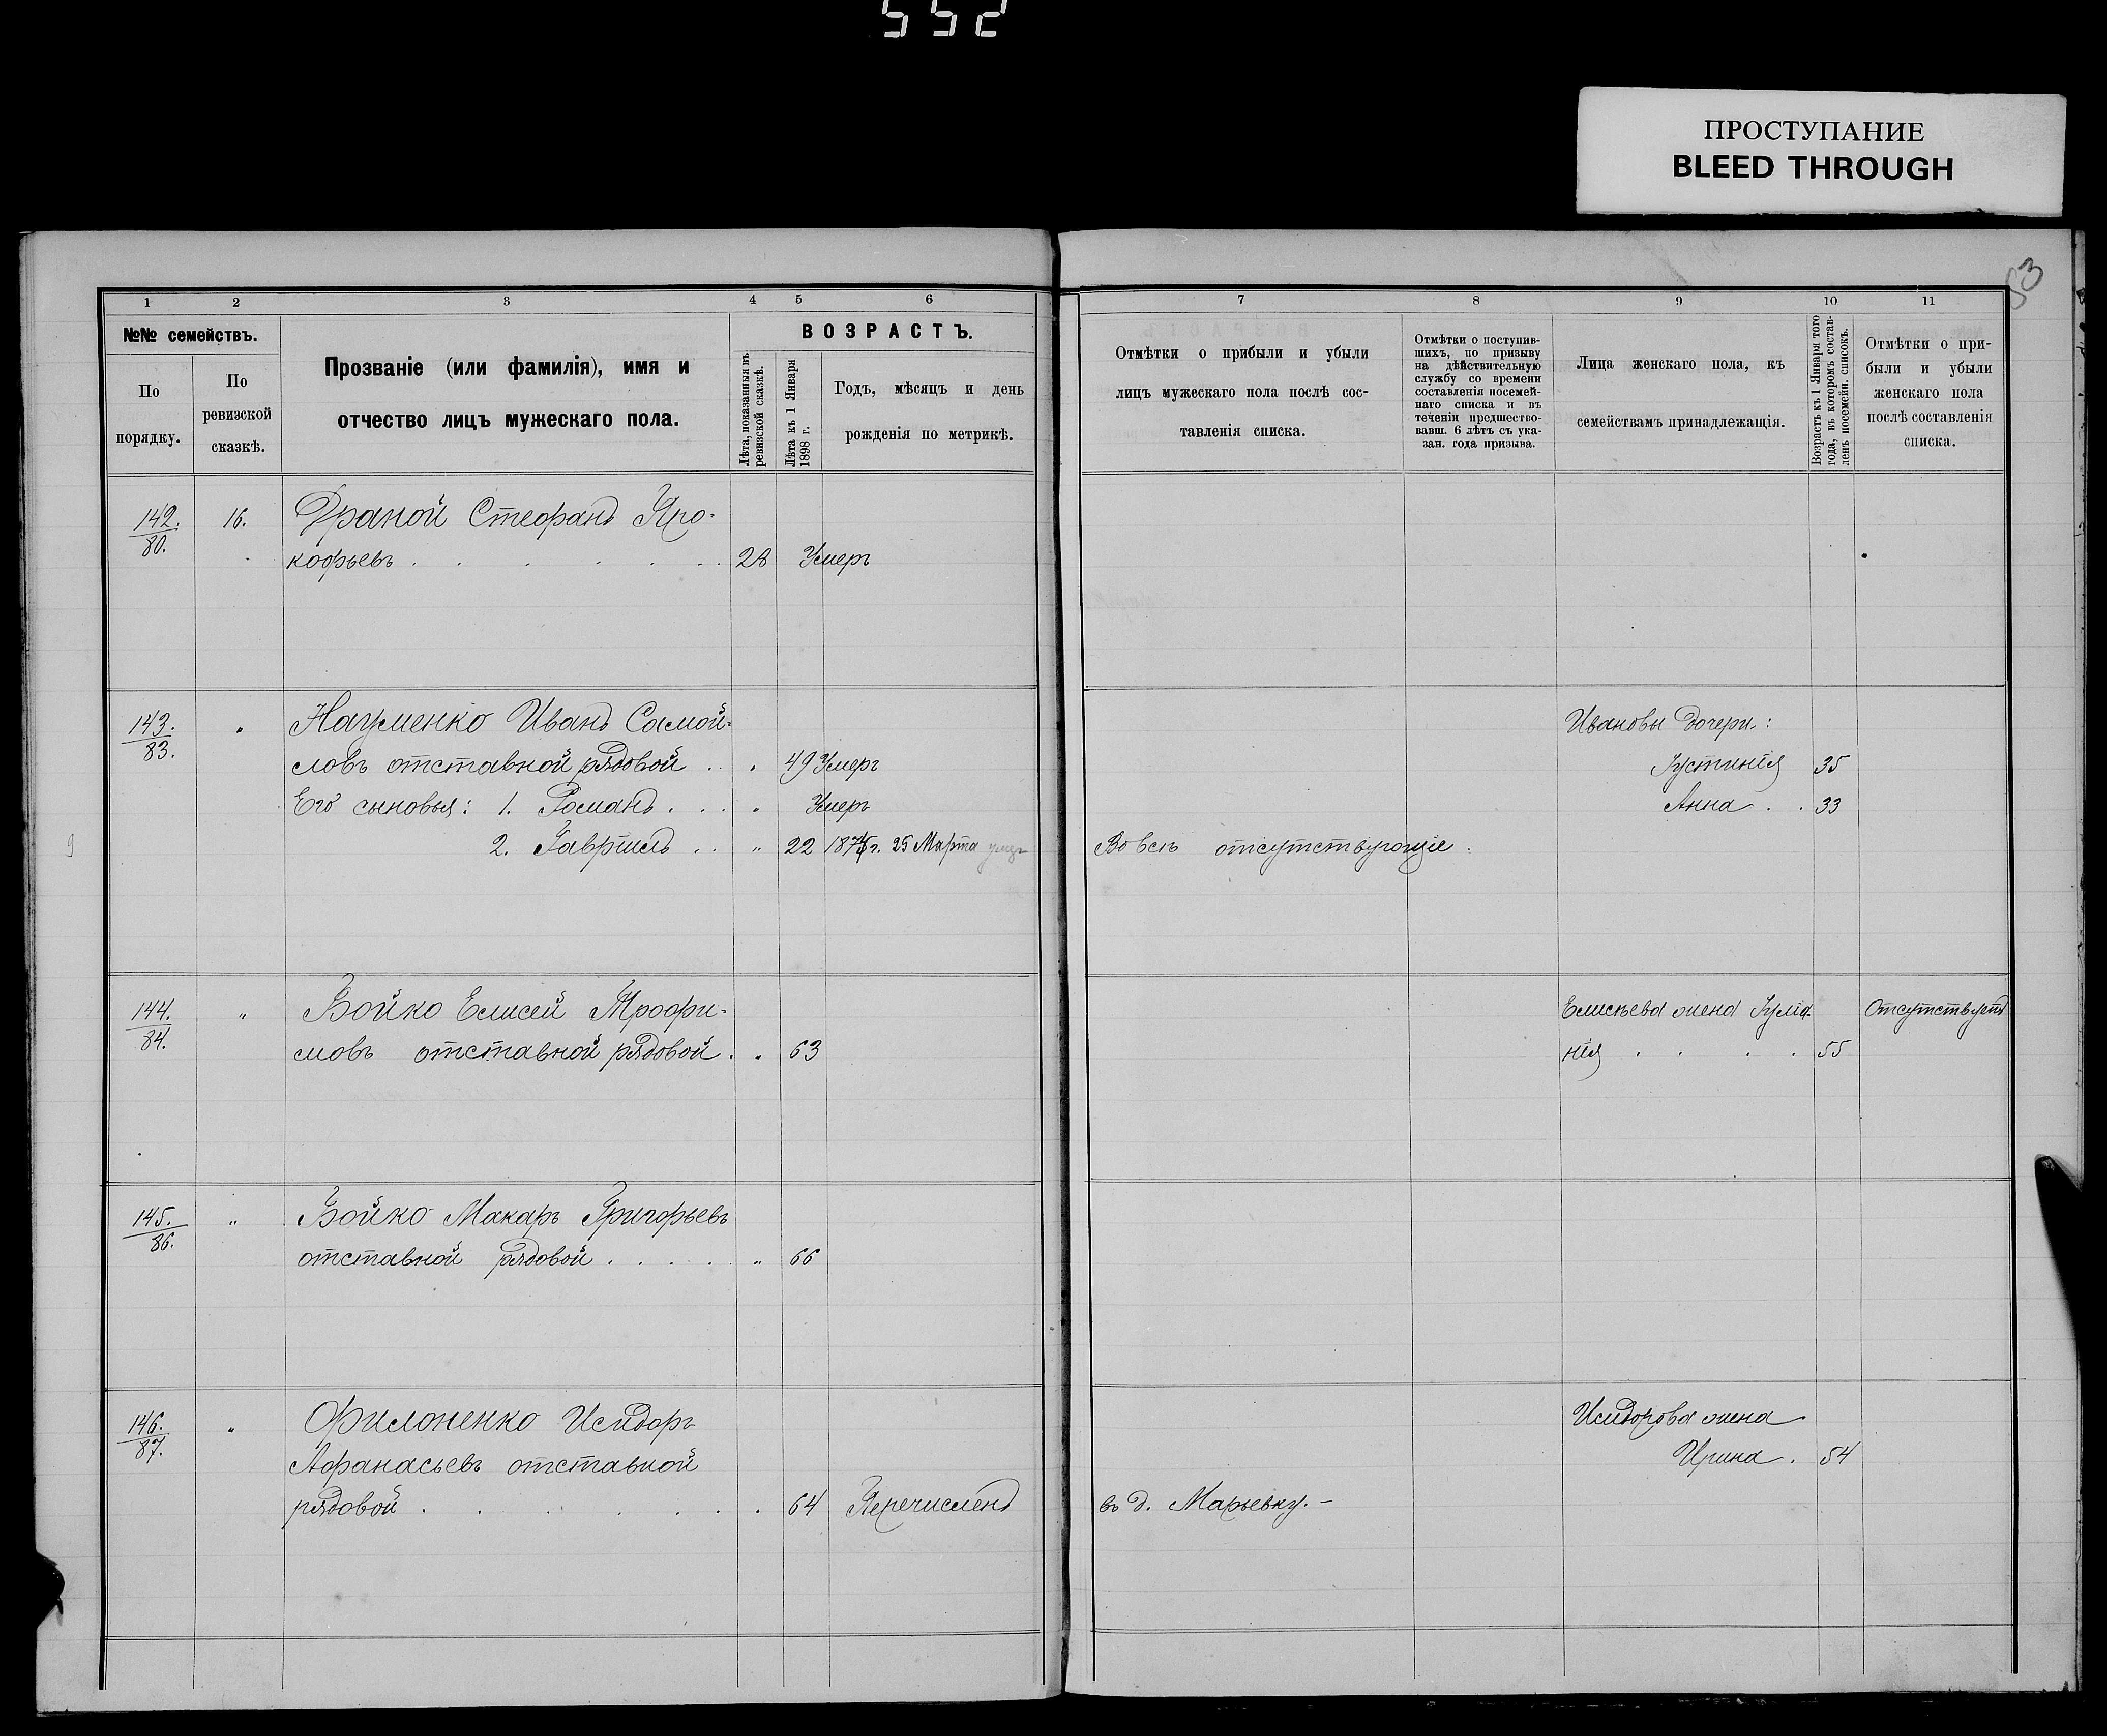 552
ПРОСТУПАНИЕ
BLEED THROUGH
1 2 3 4 5 6
№№ семействъ.
По порядку.
По ревизской сказкѣ.
Прозваніе (или фамилія), имя и
отчество лицъ мужескаго пола.
ВОЗРАСТЪ.
Лѣта, показанныя въ
ревизской сказкѣ.
Лѣта къ 1 Января
1898 г.
Годъ, мѣсяцъ и день
рожденія по метрикѣ.
7 8 9 10 11
Отмѣтки о прибыли и убыли
лицъ мужескаго пола послѣ сос-
тавленія списка.
Отмѣтки о поступив-
шихъ, по призыву
на дѣйствительную
службу со времени
составленія посемей-
наго списка и въ
теченіи предшество-
вавш. 6 лѣтъ съ ука-
зан. года призыва.
Лица женскаго пола, къ
семействамъ принадлежащія.
Возрастъ къ 1 Января того
года, въ которомъ состав-
ленъ посемейн. списокъ.
Отмѣтки о при-
были и убыли
женскаго пола
послѣ составленія
списка.
142. 16. Драной Стефанъ Про-
80. кофьевъ . . . . . . 28 Умеръ
143. " Науменко Иванъ Самой-
83. ловъ отставной рядовой . . " 49 Умеръ
Его сыновья: 1. Романъ . . . " Умеръ
2. Гавріилъ . . " 22 1875 г. 25 Марта
Вовсе отсутствующіе.
Ивановы дочери:
Іустинія 35
Анна . . 33
144. " Бойко Елисей Трофи-
84. мовъ отставной рядовой . " 63
Елисѣева жена Іуліа-
нія . . . . 55
Отсутствуетъ
145. " Бойко Макаръ Григорьевъ
86. отставной рядовой . . . . . " 66
146. " Филоненко Исидоръ
87. Афанасьевъ отставной
рядовой . . . . . . 64 Перечисленъ въ д. Марьевку. –
Исидорова жена
Ирина . 54